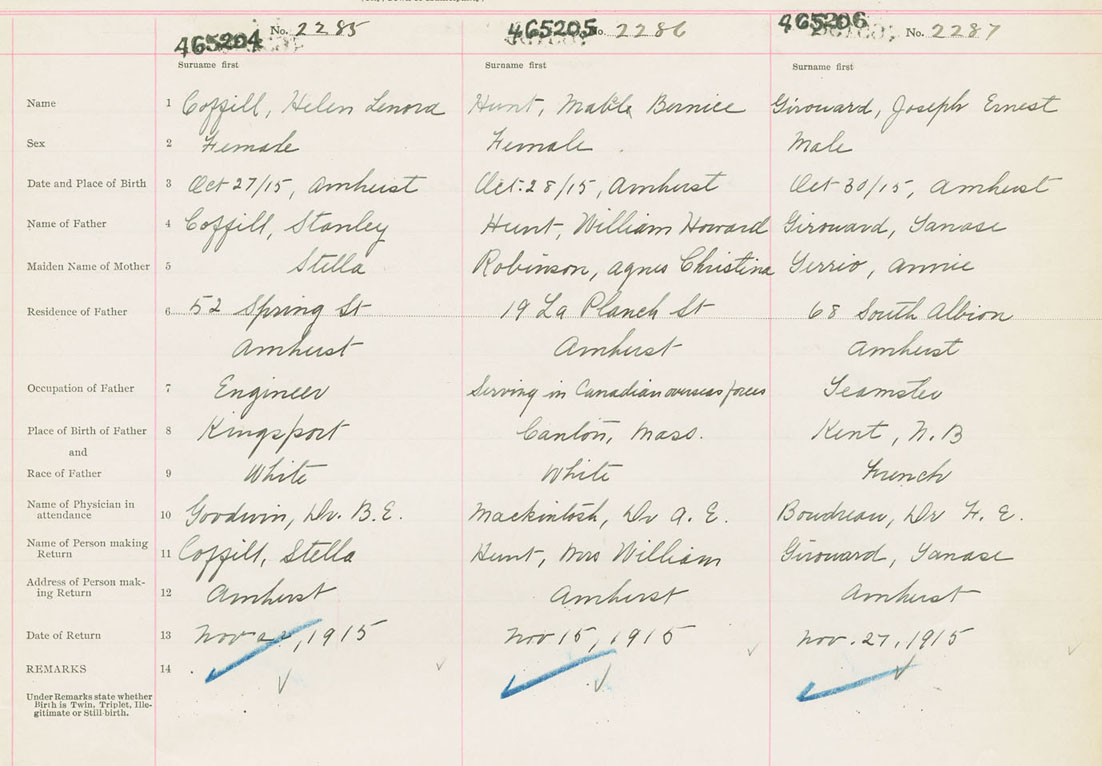 465204 No. 2285 465205 No. 2286 465206 No. 2287
Surname first Surname first Surname first
Name 1 Coffill, Helen Lenora Hunt, Mable Bernice Girouard, Joseph Ernest
Sex 2 Female Female Male
Date and Place of Birth 3 Oct 27/15, Amherst Oct. 28/15, Amherst Oct 30/15, Amherst
Name of Father 4 Coffill, Stanley Hunt, William Howard Girouard, Tanase
Maiden Name of Mother 5 Stella Robinson, Agnes Christina Gerrio, Annie
Residence of Father 6 52 Spring St 19 La Planch St 68 South Albion
Amherst Amherst Amherst
Occupation of Father 7 Engineer Serving in Canadian overseas forces Teamster
Place of Birth of Father 8 Kingsport Canton, Mass. Kent, N.B
and
Race of Father 9 White White French
Name of Physician in
attendance 10 Goodwin, Dr. B.E. Mackintosh, Dr A. E. Boudreau, Dr F. E.
Name of Person making
Return 11 Coffill, Stella Hunt, Mrs William Girouard, Tanase
Address of Person mak-
ing Return 12 Amherst Amherst Amherst
Date of Return 13 Nov , 1915 Nov 15, 1915 Nov. 27, 1915
REMARKS 14
Under Remarks state whether
Birth is Twin, Triplet, Ille-
gitimate or Still-birth.